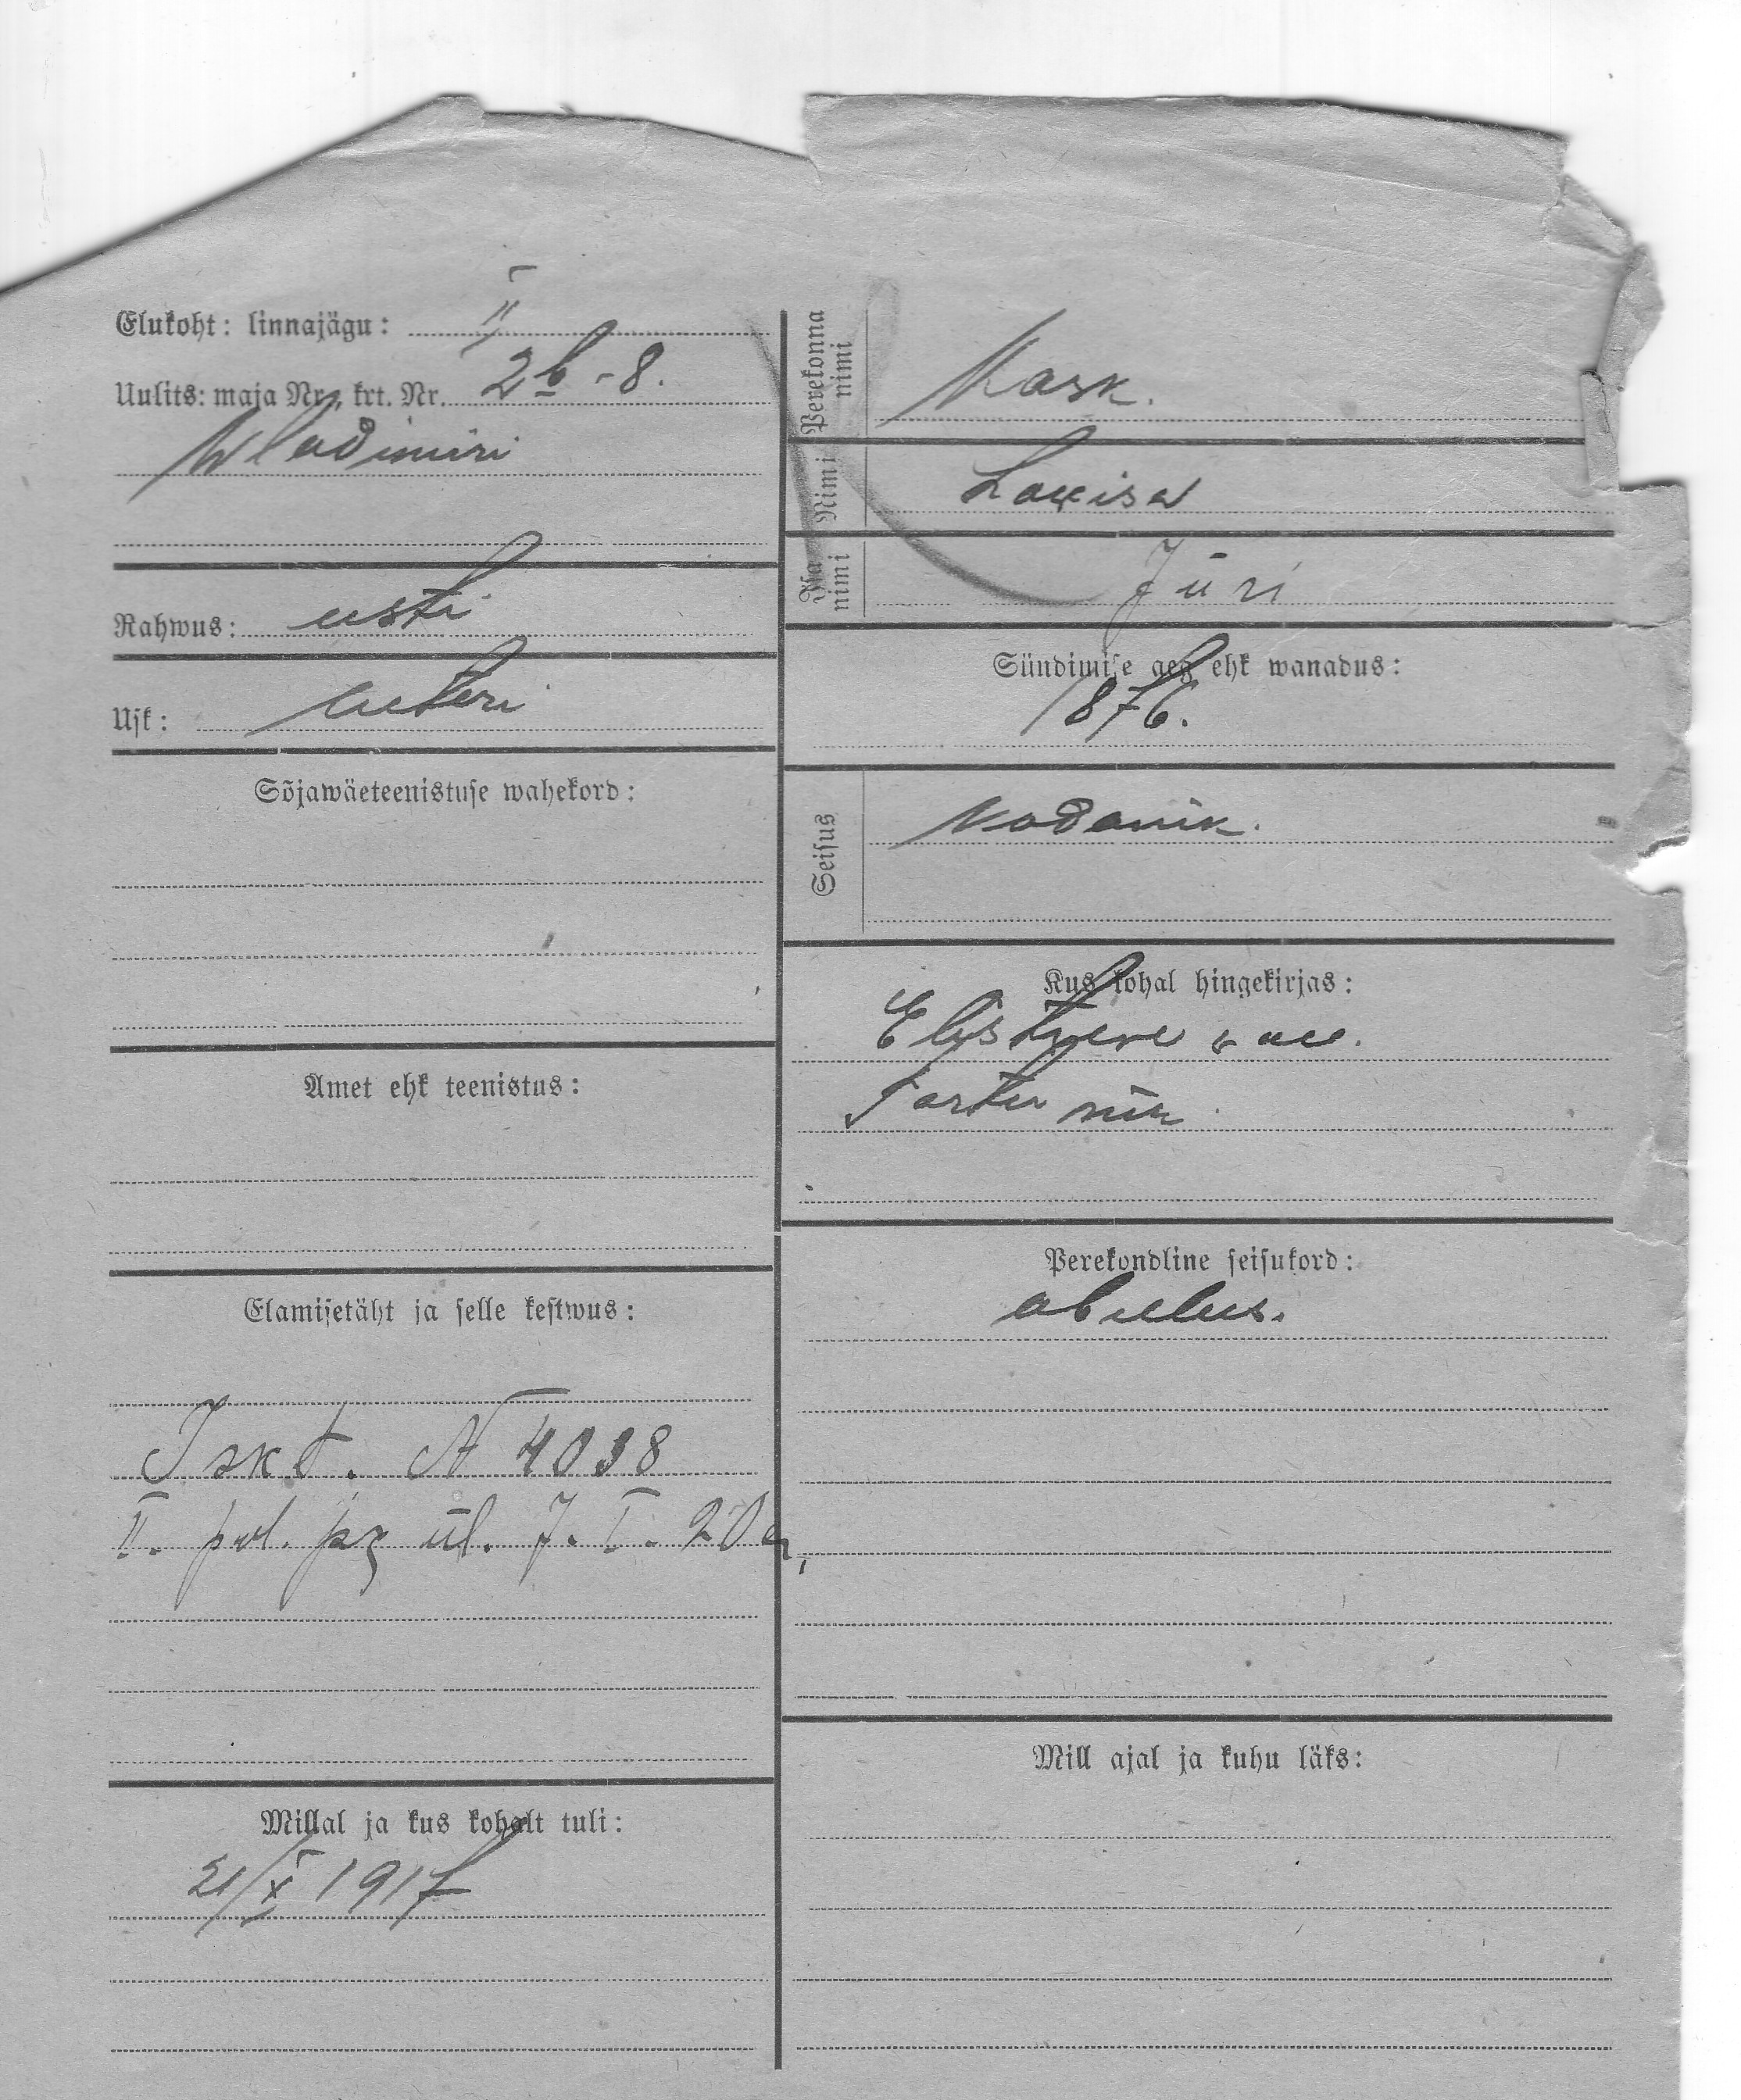 Elukoht: linnajägu: II
Uulits: maja Nr., krt. Nr. 2b - 8.
Wladimiri
Rahwus: eesti
Usk: luteri
Sõjawäeteenistuse wahekord:
Amet ehk teenistus:
Elamisetäht ja selle kestwus:
Iskt. N 4038
II. pol. jsk ül. 7. I. 20 a.
Millal ja kus kohalt tuli:
21/X 1917
Perekonna nimi
Kask.
Nimi
Loviisa
Isa nimi
Jüri
Sündimise aeg ehk wanadus:
1876.
Seisus
kodanik.
Kus kohal hingekirjas:
Elistvere
Tartu
Perekondline seisukord:
abielus.
Mill ajal ja kuhu läks: